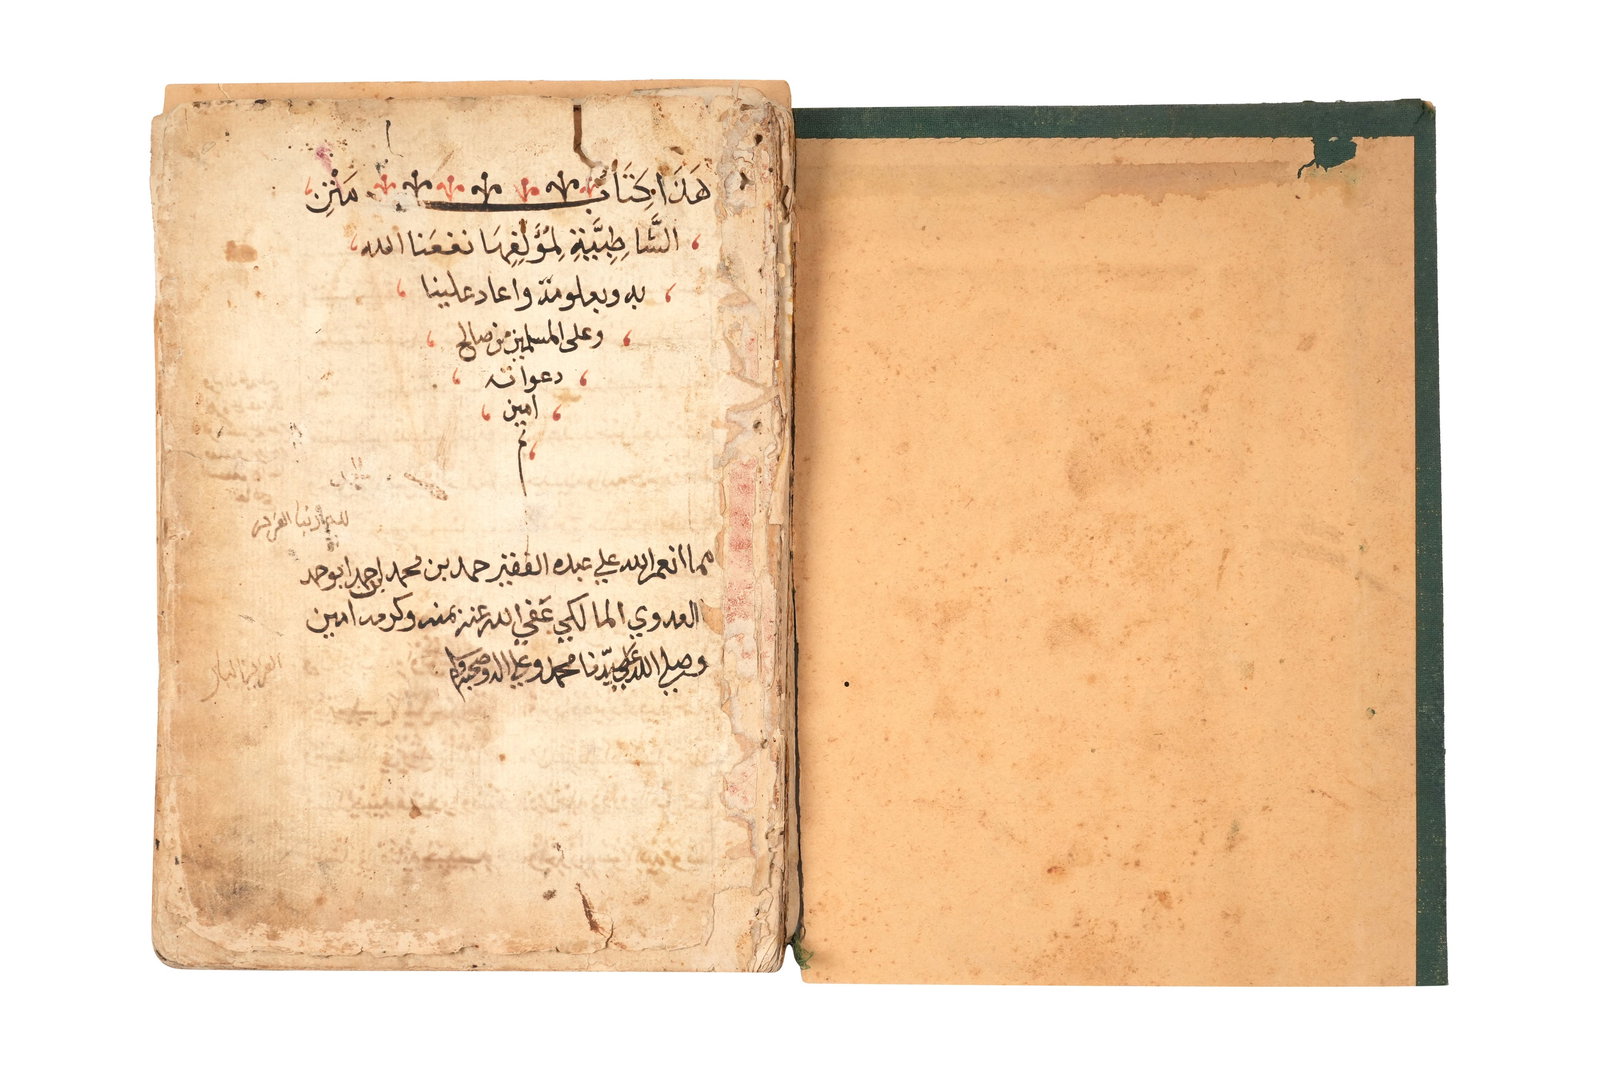 هَذَا كِتَابُ مَتْنِ
الشَّاطِبِيَّةِ لِمُؤَلِّفِهَا نفعَنا الله
به وبعلومه واعاد علينا
وعلى المسلمين من صالح
دعواته
امين
تم
مما انعم الله علي عبده الفقير حمد بن محمد ابن احمد ابو حمد
العدوي المالكي عَفي الله عنه بمنه وكرمه امين
وصلي الله علي سيّدنا محمد وعلي اله وصحبه